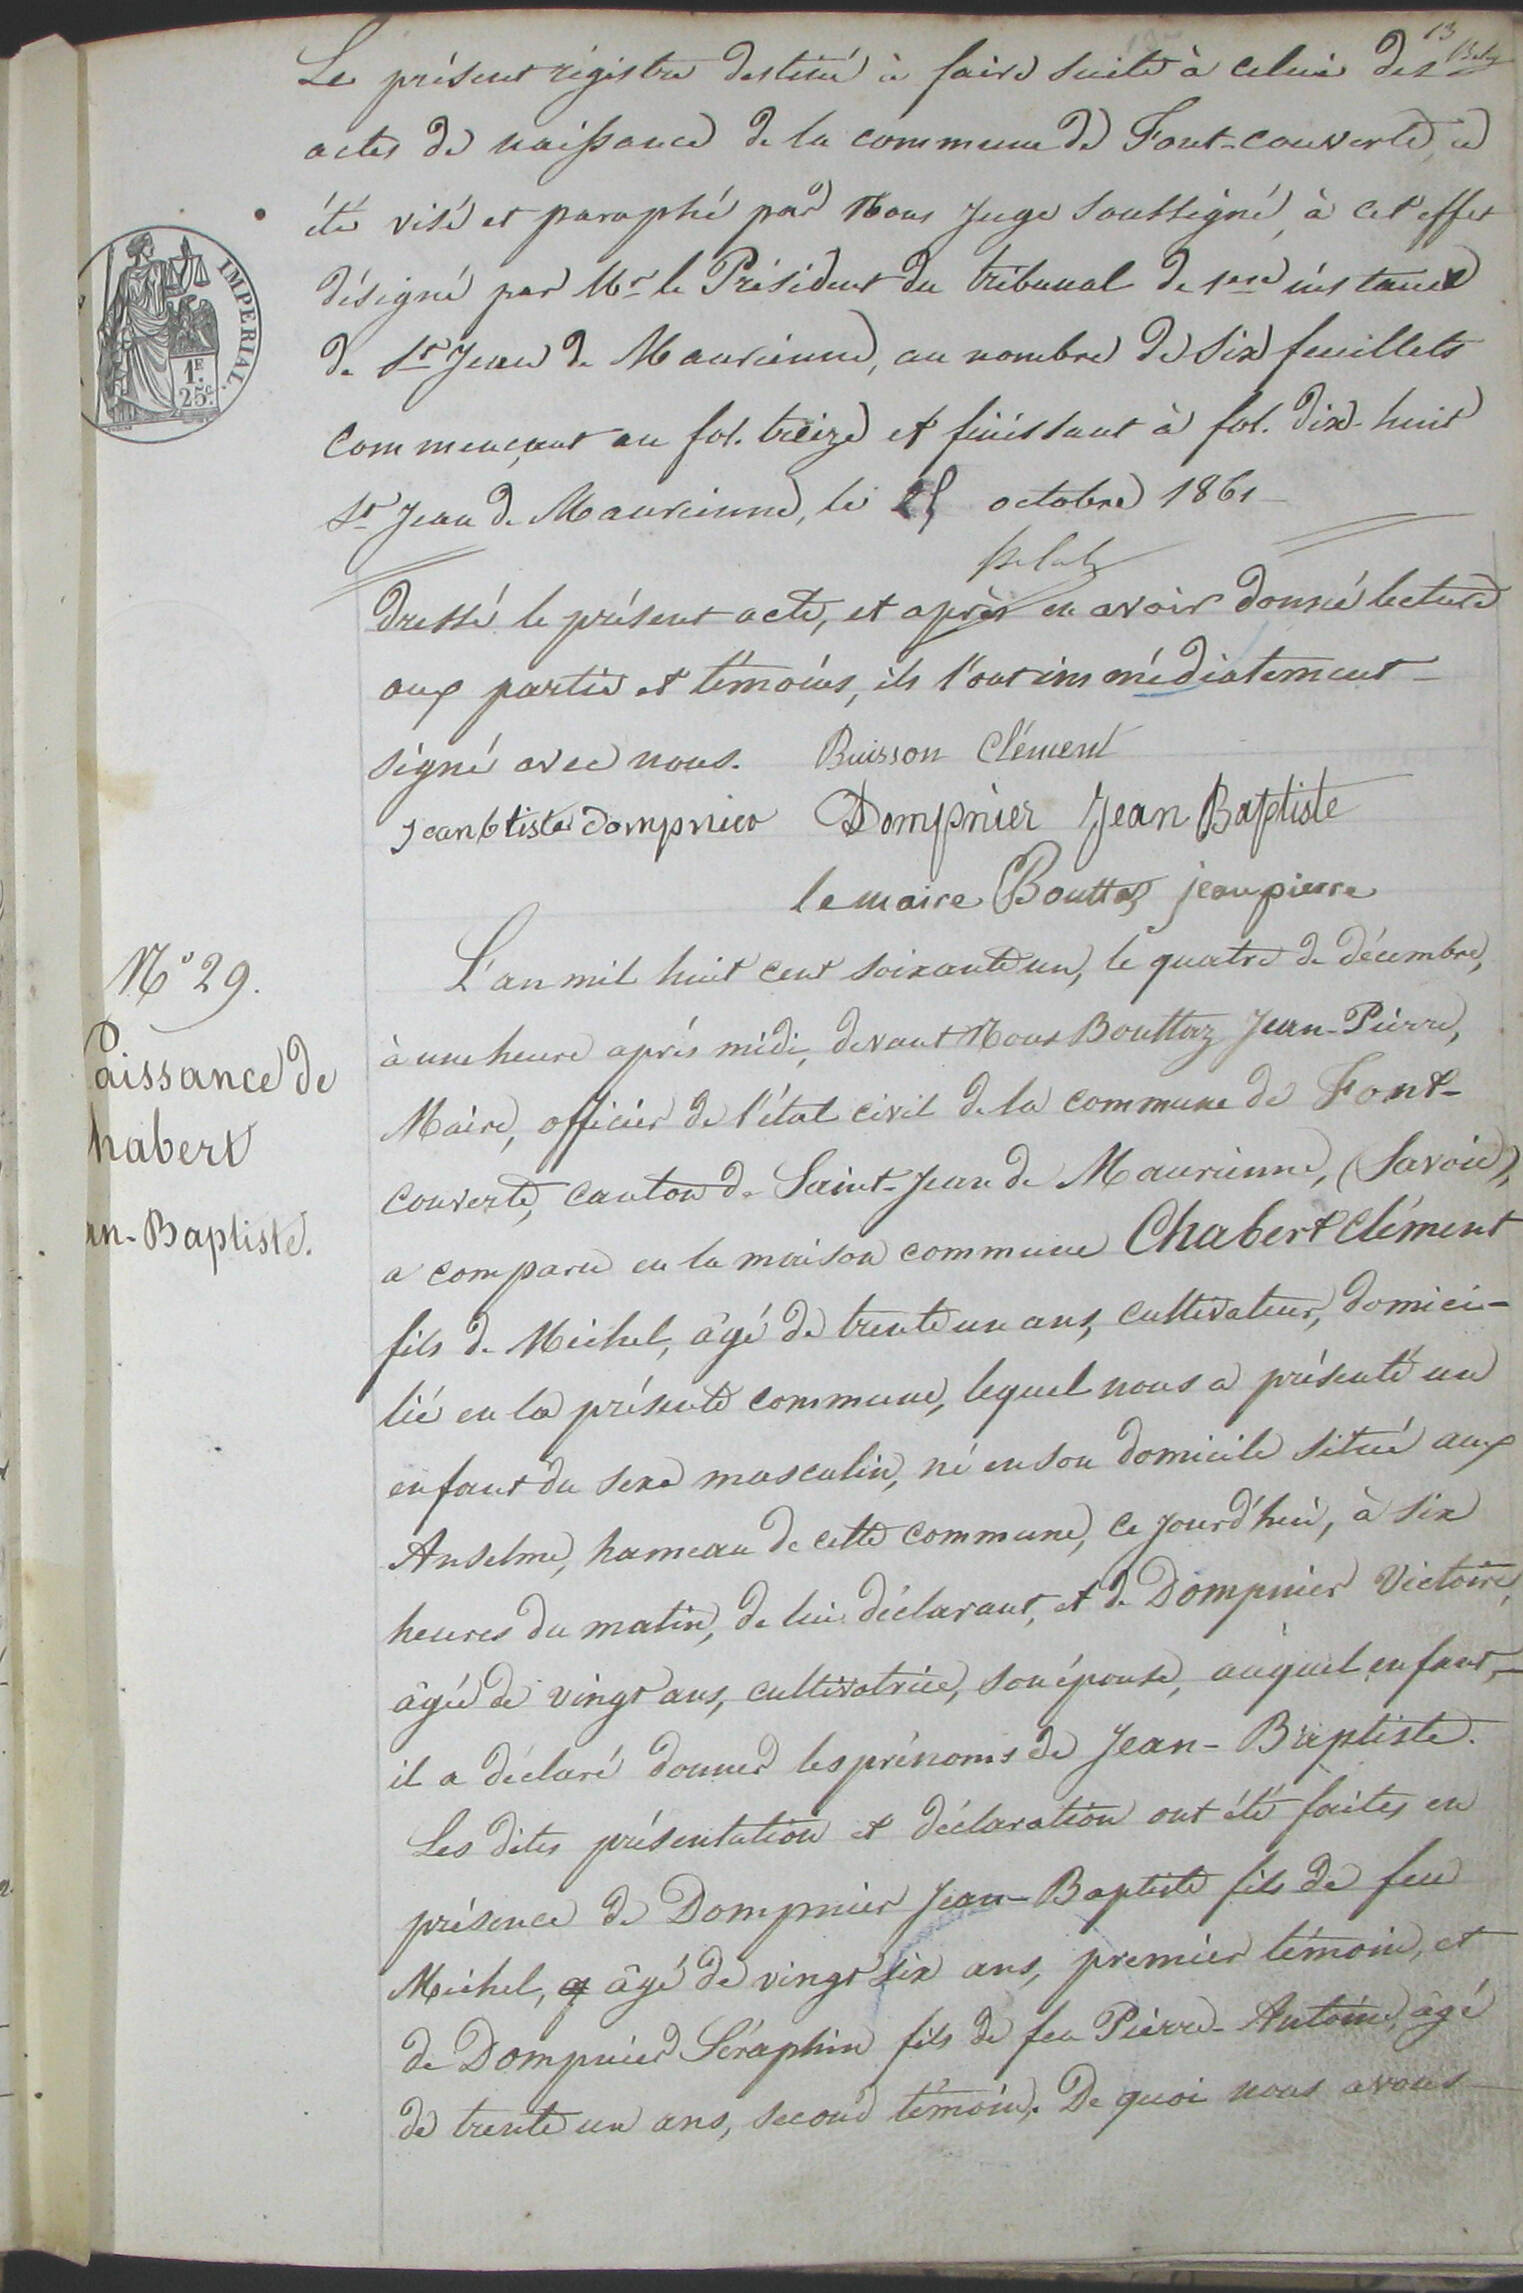 13
Le présent régistre destiné à faire suite à celui des
actes de naissance de la commune de Font-couverte, a
été visé et paraphé par Nous Juge soussigné, à cet effet
désigné par Mr le Président du tribunal de 1ere instance
de St Jean de Maurienne, au nombre de six feuillets
commençant au fol. treize et finissant à fol. dix-huit
St Jean de Maurienne, le 25 octobre 1861
IMPERIAL.
1F.
25c.
dressé le présent acte, et après en avoir donné lecture
aux partie et témoins, ils l'ont immédiatement
signé avec nous. Buisson Clément
jean btiste dompnier Dompnier Jean Baptiste
le maire Bouttaz jean pierre
N° 29.
aissance de
habert
an-Baptiste.
L'an mil huit cent soixante un, le quatre de décembre,
à une heure après midi, devant Nous Bouttaz Jean-Pierre,
Maire, officier de l'état civil de la commune de Font-
couverte, canton de Saint-Jean de Maurienne, (Savoie),
a comparu en la maison commune Chabert Clément
fils de Michel, âgé de trente un ans, cultivateur, domici-
lié en la présente commune, lequel nous a présenté un
enfant du sexe masculin, né en son domicile situé aux
Anselme, hameau de cette commune, ce jourd'hui, à six
heures du matin, de lui déclarant, et de Dompnier Victoire,
âgée de vingt ans, cultivatrice, son épouse, auquel enfant,
il a déclaré donner les prénoms de Jean-Baptiste.
Les dites présentation et déclaration ont été faites en
présence de Dompnier Jean-Baptiste fils de feu
Michel, âgé de vingt six ans, premier témoin, et
de Dompnier Séraphin fils de feu Pierre-Antoine, âgé
de trente un ans, second témoin. De quoi nous avons